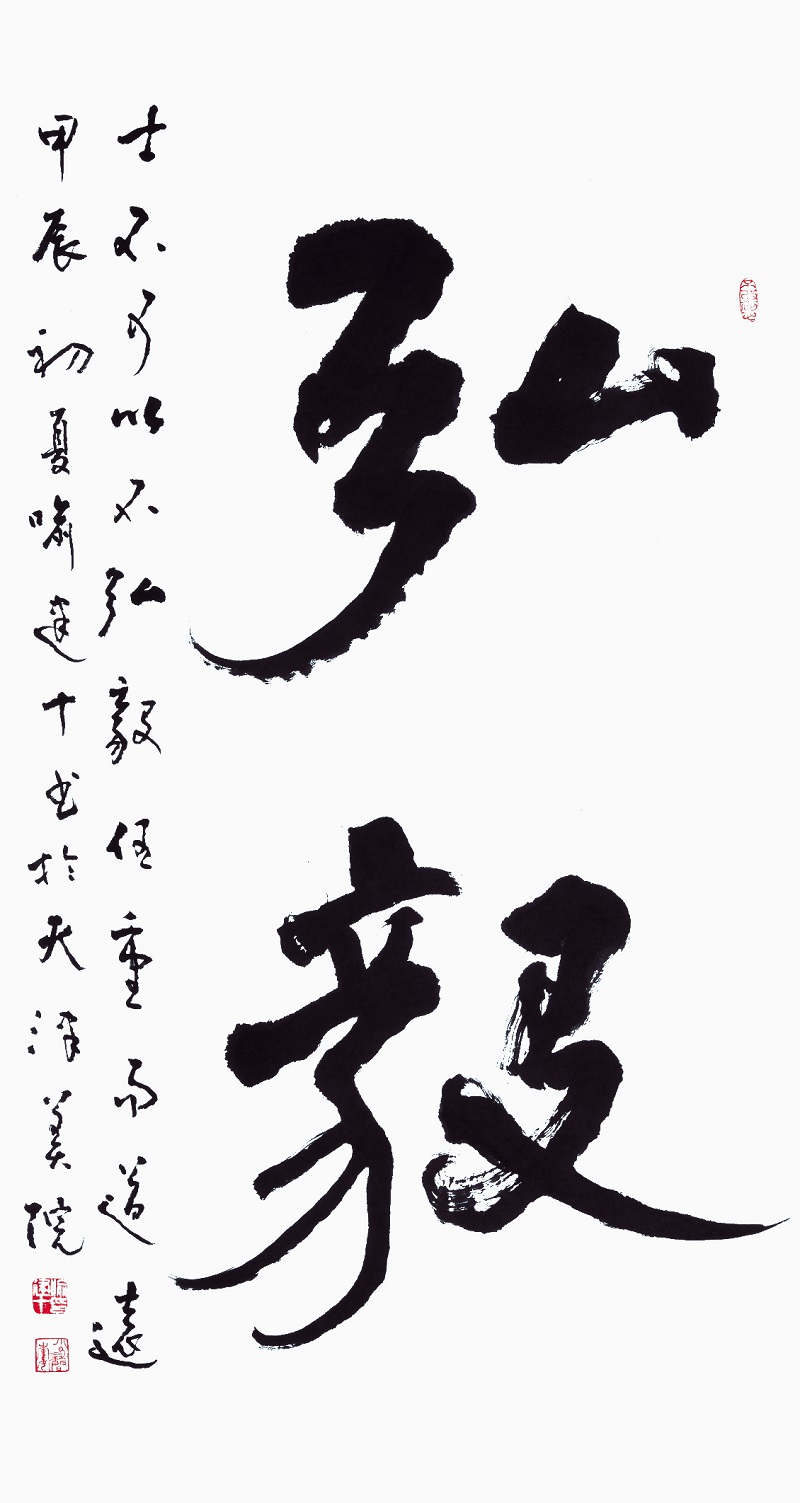 弘毅
士不可以不弘毅任重而道遠
甲辰初夏喻建十书於天津美院